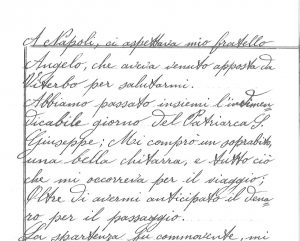 A Napoli, ci aspettava mio fratello
Angelo, che aveva venuto apposta da
Viterbo per salutarmi.
Abbiamo passato insiemi l'indimen
dicabile giorno del Patriarca S.
Giuseppe; Mi comprò un soprabito,
una bella chitarra, e tutto ciò
che mi occorreva per il viaggio;
Oltre di avermi anticipato il dena
ro per il passaggio.
La spartenza fu commovente, mi